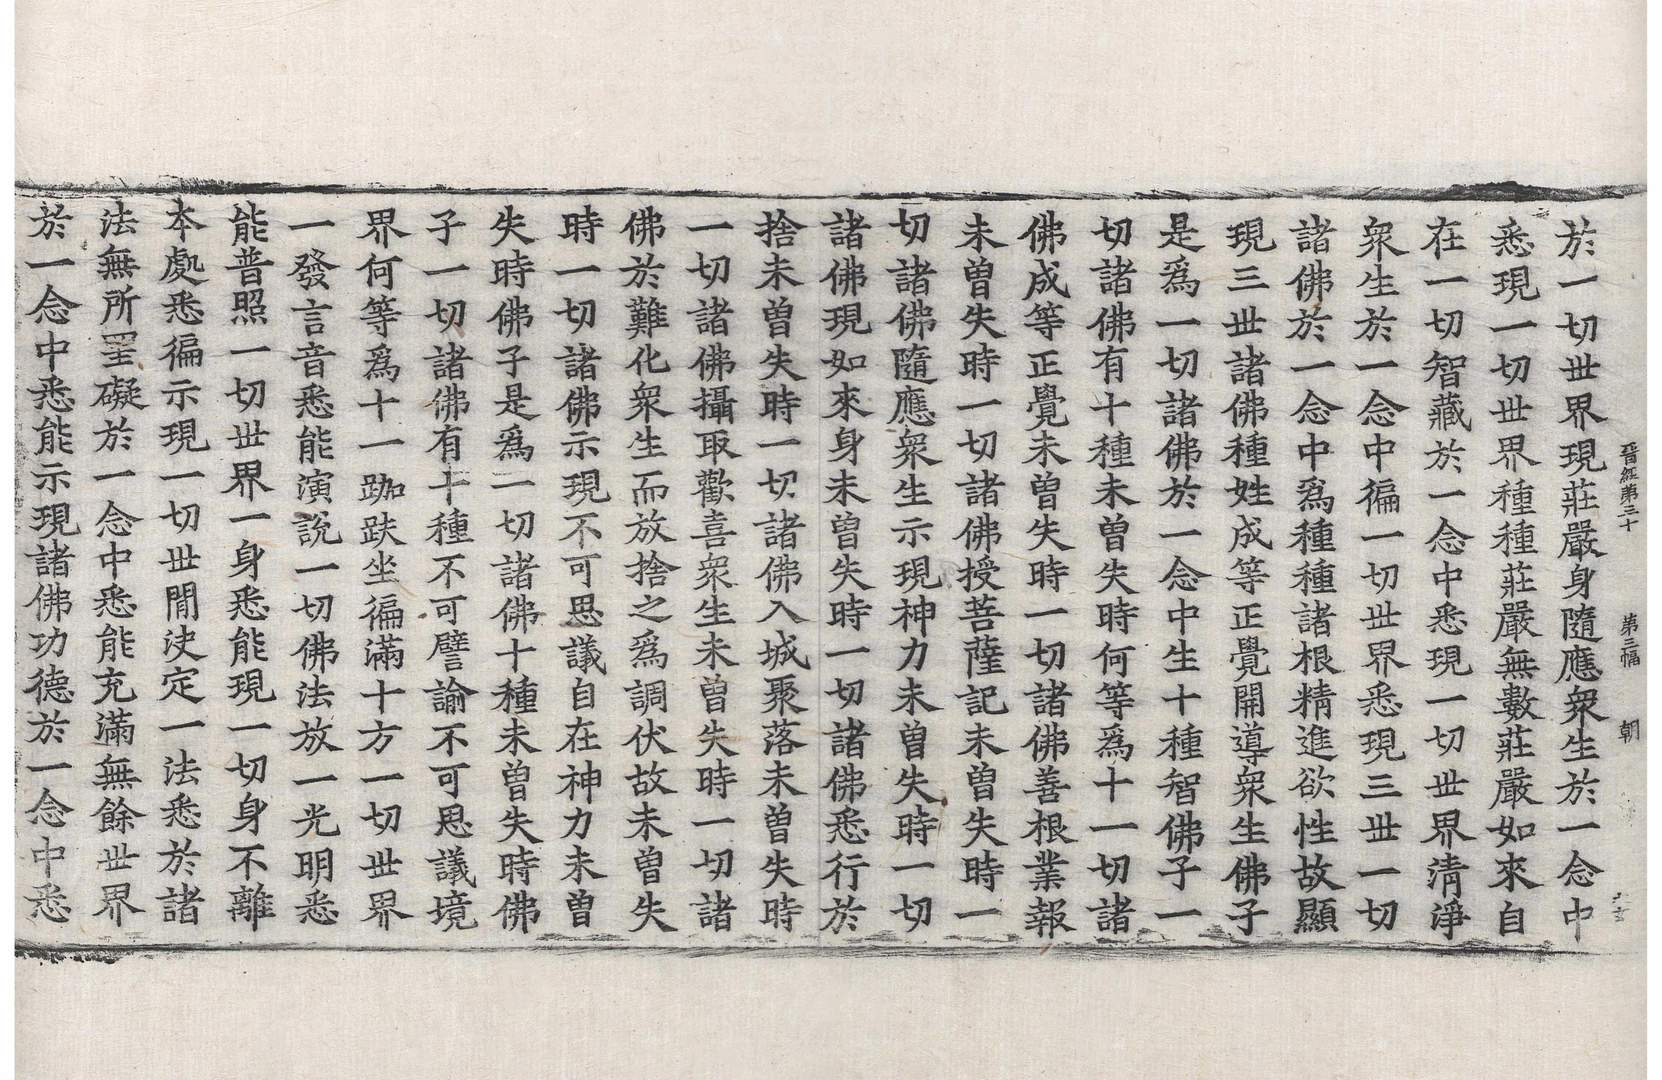 晉經第三十　第三幅　朝
於一切世界現莊嚴身隨應衆生於一念中
悉現一切世界種種莊嚴無數莊嚴如來自
在一切智藏於一念中悉現一切世界清淨
衆生於一念中徧一切世界悉現三世一切
諸佛於一念中爲種種諸根精進欲性故顯
現三世諸佛種姓成等正覺開導衆生佛子
是爲一切諸佛於一念中生十種智佛子一
切諸佛有十種未曾失時何等爲十一切諸
佛成等正覺未曾失時一切諸佛善根業報
未曾失時一切諸佛授菩薩記未曾失時一
切諸佛隨應衆生示現神力未曾失時一切
諸佛現如來身未曾失時一切諸佛悉行於
捨未曾失時一切諸佛入城聚落未曾失時
一切諸佛攝取歡喜衆生未曾失時一切諸
佛於難化衆生而放捨之爲調伏故未曾失
時一切諸佛示現不可思議自在神力未曾
失時佛子是爲一切諸佛十種未曾失時佛
子一切諸佛有十種不可譬諭不可思議境
界何等爲十一跏趺坐徧滿十方一切世界
一發言音悉能演說一切佛法放一光明悉
能普照一切世界一身悉能現一切身不離
本處悉徧示現一切世閒決定一法悉於諸
法無所罣礙於一念中悉能充滿無餘世界
於一念中悉能示現諸佛功德於一念中悉